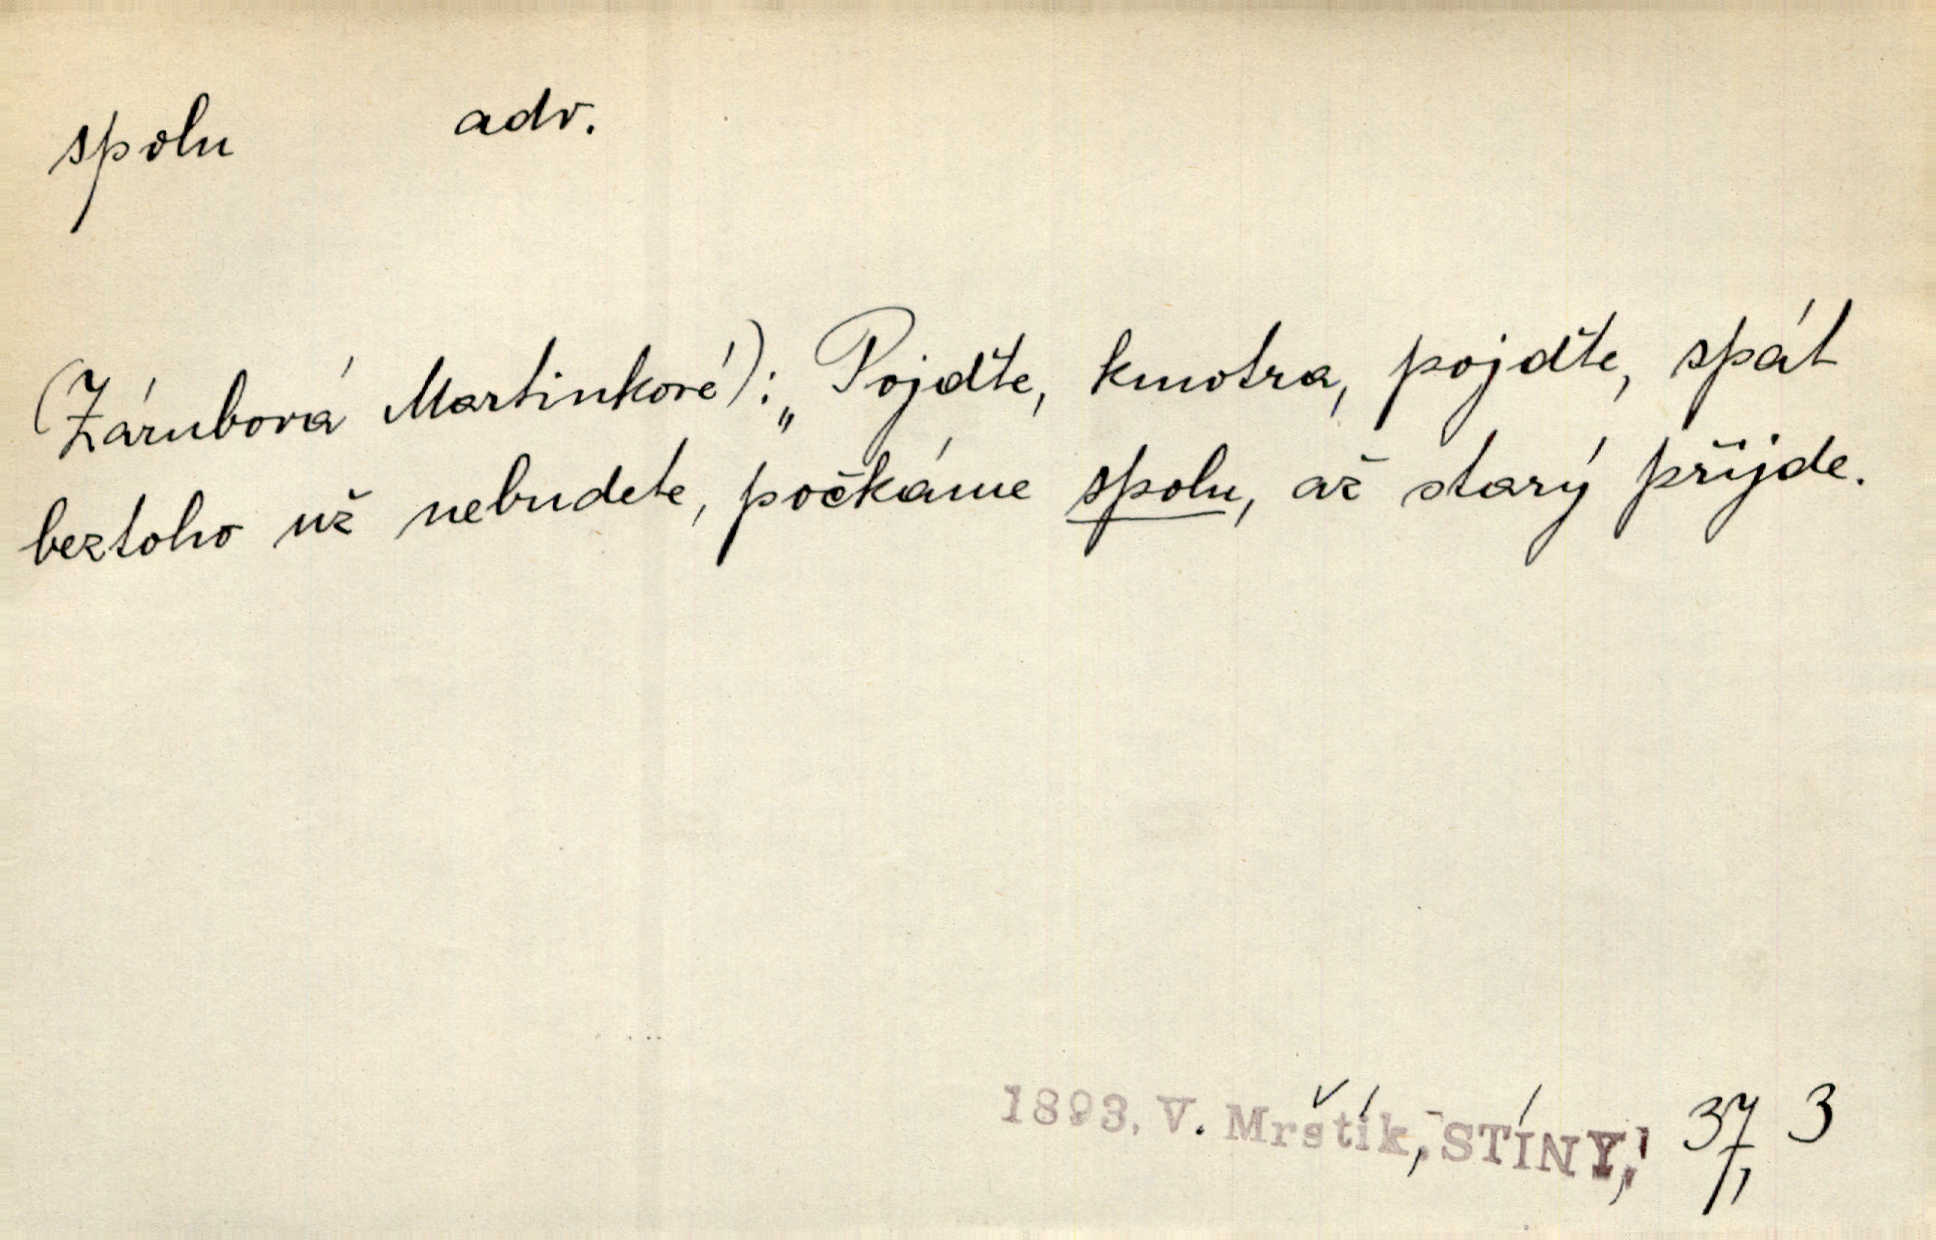 spolu adv.
(Zárubová Martinkové): „Pojďte, kmotra, pojďte, spát
beztoho už nebudete, počkáme spolu, až starý přijde.
1893, V. Mrštík, STÍNY, 37, 3